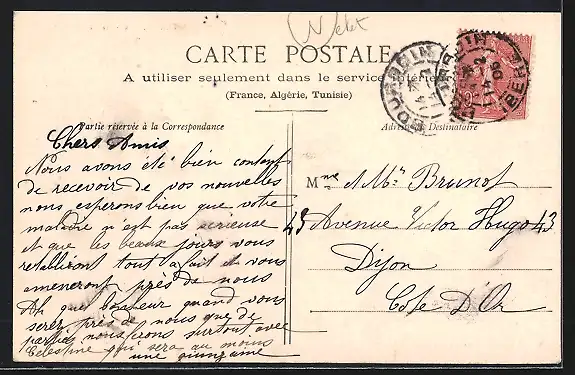 Nelet
CARTE POSTALE
A utiliser seulement dans le service intérieur
(France, Algérie, Tunisie)
Partie réservée à la Correspondance
Adresse du Destinataire
Chers Amis
Nous avons été bien content
de recevoir de vos nouvelles
nous esperons bien que votre
maladie n'est pas serieuse
et que les beaux jours vous
retabliront tout a fait et vous
ameneront près de nous
Ah que bonheur quand vous
serez près de nous que de
parties nous ferons surtout avec
Celestine qui sera au moins
une
Mme & Mr Brunot
43 Avenue Victor Hugo 43
Dijon
Cote D'Or